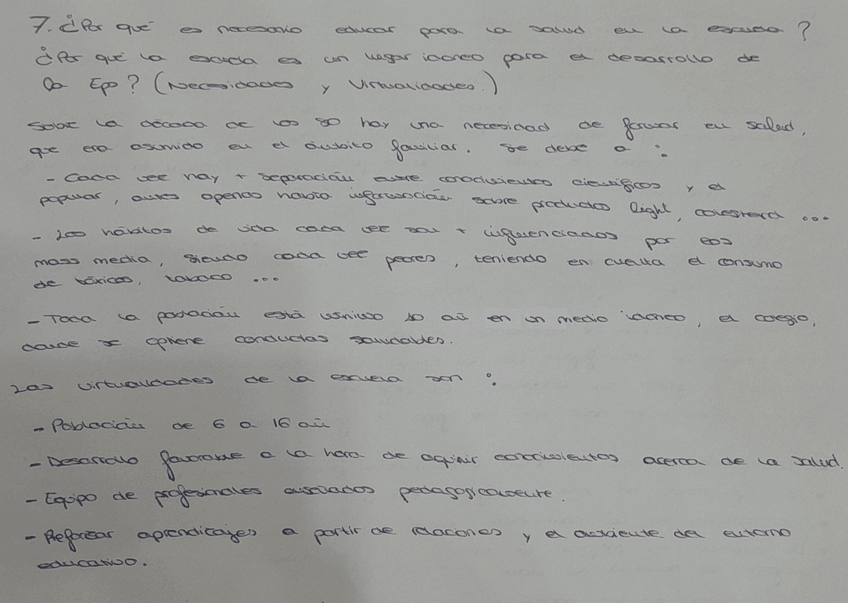 7. ¿Por qué es necesario educar para la salud en la escuela?
¿Por qué la escuela es un lugar idoneo para el desarrollo de
la Eps? (Necesidades y Virtualidades.)
Sobre la década de los 80 hay una necesidad de formar en salud,
que era asumido en el ámbito familiar. Se debe a:
- Cada vez hay + separación entre conocimientos científicos y el
popular, antes apenas había información sobre productos light, colesterol ...
- Los hábitos de vida cada vez son + influenciados por los
mass media, siendo cada vez peores, teniendo en cuenta el consumo
de tóxicos, tabaco ...
- Toda la población está mínimo 10 añ en un medio idoneo, el colegio,
donde se obtiene conductas saludables.
Las virtualidades de la escuela son:
- Población de 6 a 16 añ
- Desarrollo favorable a la hora de aquirir conocimientos acerca de la salud.
- Equipo de profesionales pedagogicamente.
- Reforzar aprendizajes a partir de relaciones y el ambiente del entorno
educativo.